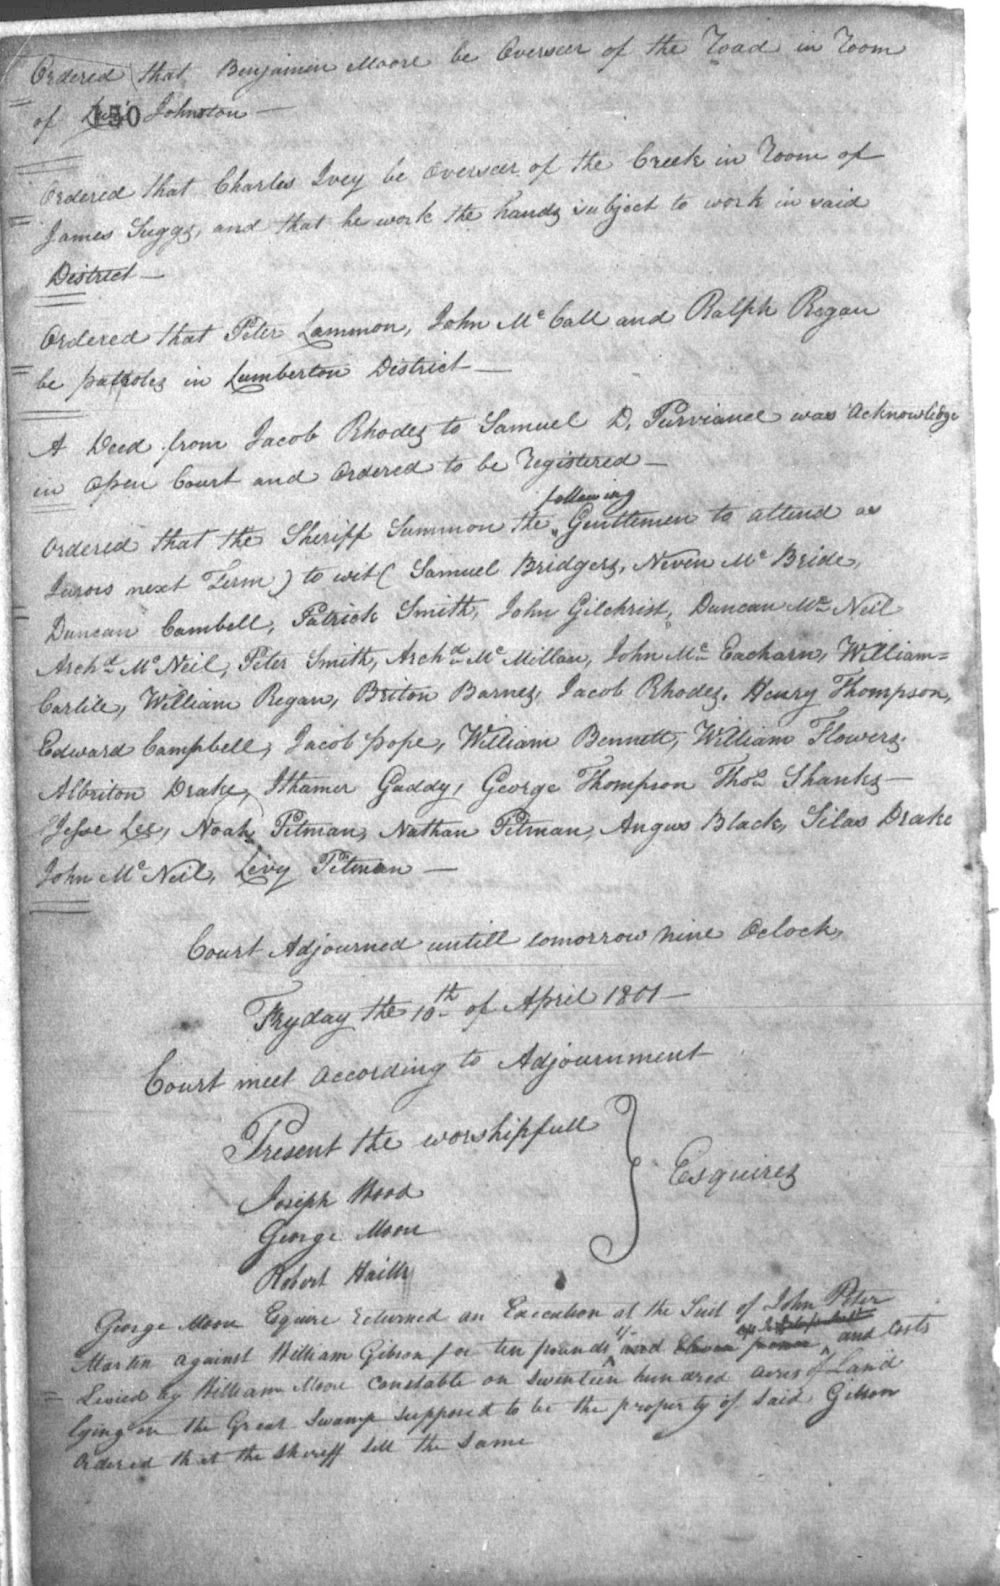 Ordered that Benjamin Moore be Overseer of the Road in Room
of 150 Johnston —
Ordered that Charles Ivey be Overseer of the Creek in Room of
James Suggs, and that he work the hands subject to work in said
District —
Ordered that Peter Lammon, John Mc Call and Ralph Regan
be patroles in Lumberton District —
A Deed from Jacob Rhodes to Samuel D. Purviance was Acknowledge
in Open Court and Ordered to be Registered —
following
Ordered that the Sheriff Summon the Gentlemen to attend as
Jurors next Term) to wit ( Samuel Bridgers, Neven Mc Bride,
Duncan Cambell, Patrick Smith, John Gilchrist, Duncan Mc Neil
Archd Mc Neil, Peter Smith, Archd Mc Millan, John Mc Eacharn, William=
Carlile, William Regan, Briton Barnes, Jacob Rhodes, Henry Thompson,
Edward Campbell, Jacob pope, William Bennett, William Flowers
Albriton Drake, Ithamer Gaddy, George Thompson Thos Shanks —
Jesse Lee, Noah Pitman, Nathan Pitman, Angus Black, Silas Drake
John Mc Neil, Levy Pitman —
Court Adjourned untill tomorrow nine Oclock,
Fryday the 10th of April 1801 —
Court meet according to Adjournment
Present the worshipfull
Esquires
Joseph Wood
George Moore
Robert Hails
George Moore Esquire Returned an Execution at the Suit of John Peter
Martin against William Gibson for ten pounds and costs
Levied by William Moore Constable on Seventeen hundred acres of Land
lying on the Great Swamp supposed to be the property of said Gibson
Ordered that the Sheriff sell the same